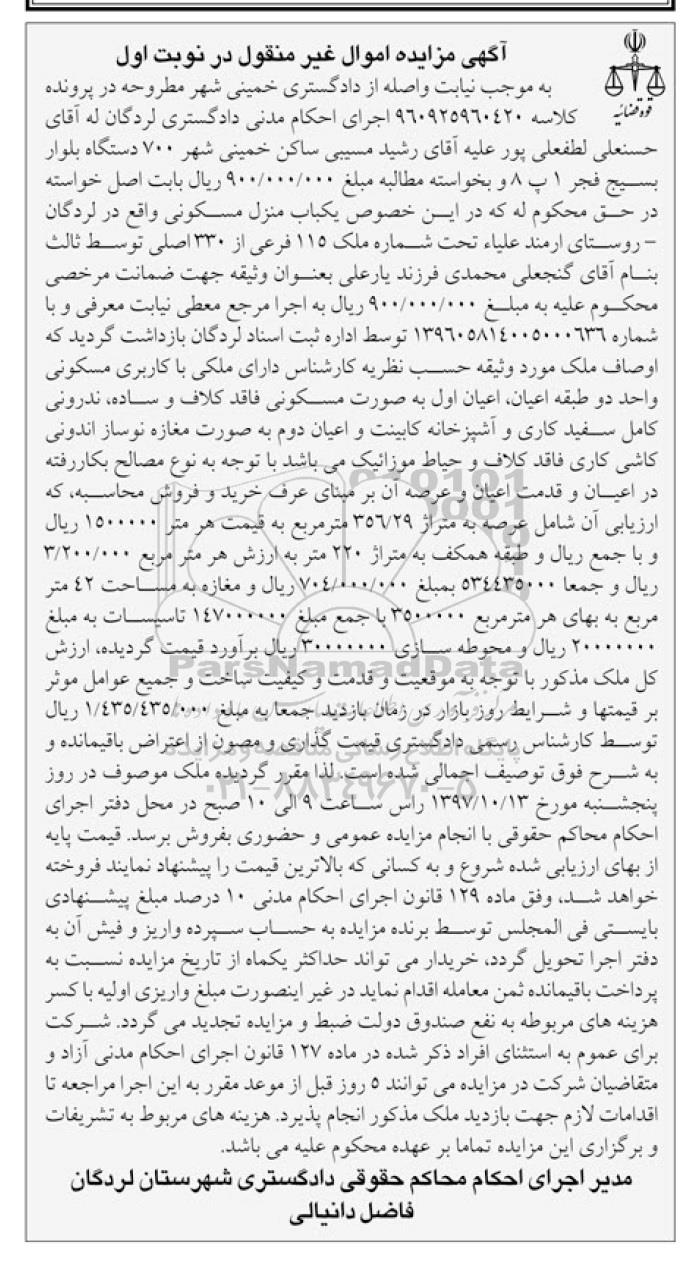 آگهی مزایده اموال غیر منقول در نوبت اول
قوه قضائیه
به موجب نیابت واصله از دادگستری خمینی شهر مطروحه در پرونده
کلاسه ۹۶۰۹۲۵۹۶۰۴۲۰ اجرای احکام مدنی دادگستری لردگان له آقای
حسنعلی لطفعلی پور علیه آقای رشید مسیبی ساکن خمینی شهر ۷۰۰ دستگاه بلوار
بسیج فجر ۱ پ ۸ و بخواسته مطالبه مبلغ ۹۰۰/۰۰۰/۰۰۰ ریال بابت اصل خواسته
در حق محکوم له که در این خصوص یکباب منزل مسکونی واقع در لردگان
– روستای ارمند علیاء تحت شماره ملک ۱۱۵ فرعی از ۳۳۰ اصلی توسط ثالث
بنام آقای گنجعلی محمدی فرزند یارعلی بعنوان وثیقه جهت ضمانت مرخصی
محکوم علیه به مبلغ ۹۰۰/۰۰۰/۰۰۰ ریال به اجرا مرجع معطی نیابت معرفی و با
شماره ۱۳۹۶۰۵۸۱۴۰۰۵۰۰۰۶۳۶ توسط اداره ثبت اسناد لردگان بازداشت گردید که
اوصاف ملک مورد وثیقه حسب نظریه کارشناس دارای ملکی با کاربری مسکونی
واحد دو طبقه اعیان، اعیان اول به صورت مسکونی فاقد کلاف و ساده، ندرونی
کامل سفید کاری و آشپزخانه کابینت و اعیان دوم به صورت مغازه نوساز اندونی
کاشی کاری فاقد کلاف و حیاط موزائیک می باشد با توجه به نوع مصالح بکاررفته
در اعیان و قدمت اعیان و عرصه آن بر مبنای عرف خرید و فروش محاسبه، که
ارزیابی آن شامل عرصه به متراژ ۳۵۶/۲۹ مترمربع به قیمت هر متر ۱۵۰۰۰۰۰ ریال
و با جمع ریال و طبقه همکف به متراژ ۲۲۰ متر به ارزش هر متر مربع ۳/۲۰۰/۰۰۰
ریال و جمعا ۵۳٤٤۳۵۰۰۰ بمبلغ ۷۰٤/۰۰۰/۰۰۰ ریال و مغازه به مساحت ٤۲ متر
مربع به بهای هر مترمربع ۳۵۰۰۰۰۰ با جمع مبلغ ۱٤۷۰۰۰۰۰۰ تاسیسات به مبلغ
۲۰۰۰۰۰۰۰ ریال و محوطه سازی ۳۰۰۰۰۰۰۰ ریال برآورد قیمت گردیده، ارزش
کل ملک مذکور با توجه به موقعیت و قدمت و کیفیت ساخت و جمیع عوامل موثر
بر قیمتها و شرایط روز بازار در زمان بازدید جمعا به مبلغ ۱/٤۳۵/٤۳۵/۰۰۰ ریال
توسط کارشناس رسمی دادگستری قیمت گذاری و مصون از اعتراض باقیمانده و
به شرح فوق توصیف اجمالی شده است. لذا مقرر گردیده ملک موصوف در روز
پنجشنبه مورخ ۱۳۹۷/۱۰/۱۳ راس ساعت ۹ الی ۱۰ صبح در محل دفتر اجرای
احکام محاکم حقوقی با انجام مزایده عمومی و حضوری بفروش برسد. قیمت پایه
از بهای ارزیابی شده شروع و به کسانی که بالاترین قیمت را پیشنهاد نمایند فروخته
خواهد شد، وفق ماده ۱۲۹ قانون اجرای احکام مدنی ۱۰ درصد مبلغ پیشنهادی
بایستی فی المجلس توسط برنده مزایده به حساب سپرده واریز و فیش آن به
دفتر اجرا تحویل گردد، خریدار می تواند حداکثر یکماه از تاریخ مزایده نسبت به
پرداخت باقیمانده ثمن معامله اقدام نماید در غیر اینصورت مبلغ واریزی اولیه با کسر
هزینه های مربوطه به نفع صندوق دولت ضبط و مزایده تجدید می گردد. شرکت
برای عموم به استثنای افراد ذکر شده در ماده ۱۲۷ قانون اجرای احکام مدنی آزاد و
متقاضیان شرکت در مزایده می توانند ۵ روز قبل از موعد مقرر به این اجرا مراجعه تا
اقدامات لازم جهت بازدید ملک مذکور انجام پذیرد. هزینه های مربوط به تشریفات
و برگزاری این مزایده تماما بر عهده محکوم علیه می باشد.
مدیر اجرای احکام محاکم حقوقی دادگستری شهرستان لردگان
فاضل دانیالی
ParsNamadData
پایگاه اطلاع رسانی مناقصه و مزایده
۰۲۱-۸۸۳٤۹۶۷۰-۵